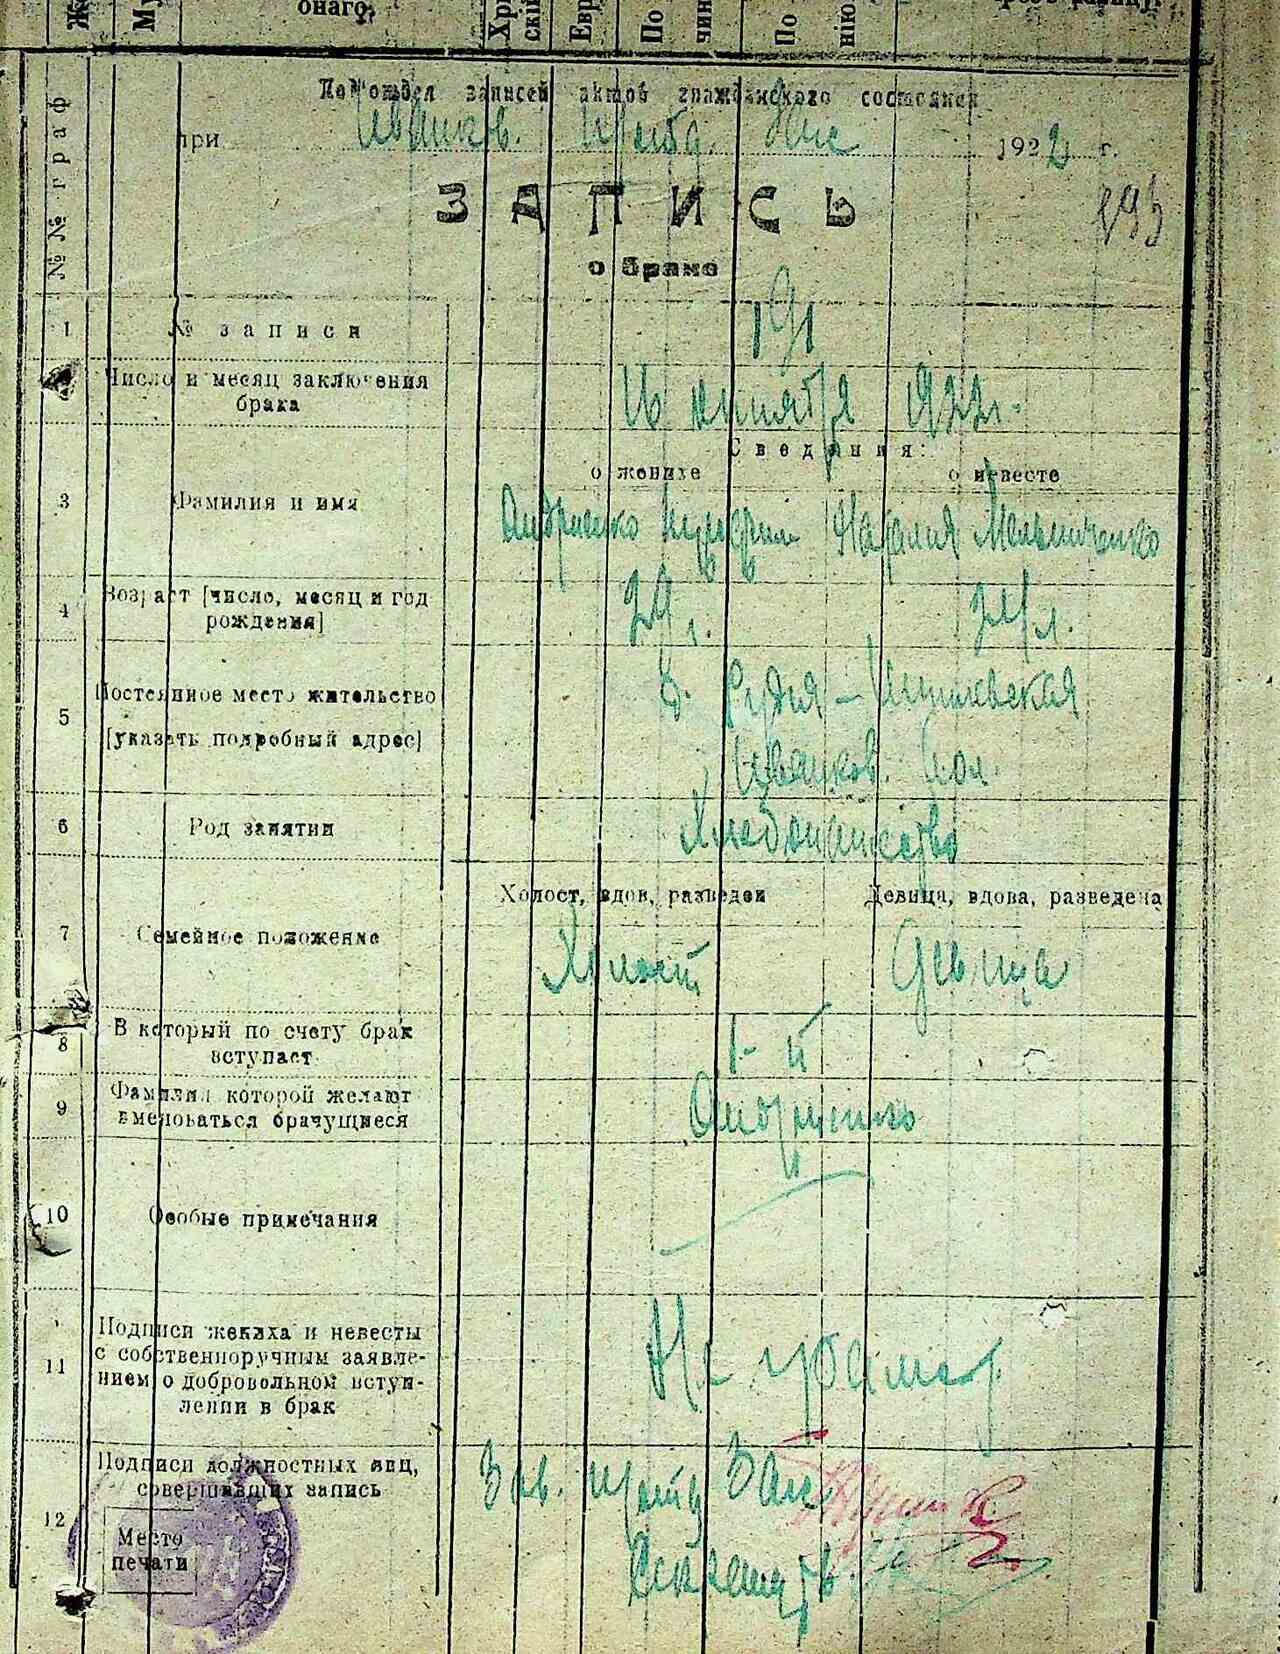 онаго,
Подотдел записей актов гражданского состояния
при Иванков. 1922 г.
№№ граф
ЗАПИСЬ
о браке
1 № записи 191
Число и месяц заключения брака
16 1922 г.
Сведения:
о женихе о невесте
3 Фамилия и имя
Андриенко Наталия Мельниченко
4 Возраст [число, месяц и год рождения]
29 л. 24 л.
5 Постоянное место жительство
[указать подробный адрес]
Рудня-
Иванков. вол.
6 Род занятий Хлебопашество
Холост, вдов, разведен Девица, вдова, разведена
7 Семейное положение
Холост Девица
8 В который по счету брак вступает
1-й
9 Фамилия которой желают именоваться брачущиеся
Андриенко
10 Особые примечания
11 Подписи жениха и невесты
с собственноручным заявле-
нием о добровольном вступ-
лении в брак
12 Подписи должностных лиц,
совершивших запись
Зав. Загс
Место
печати
Секретарь